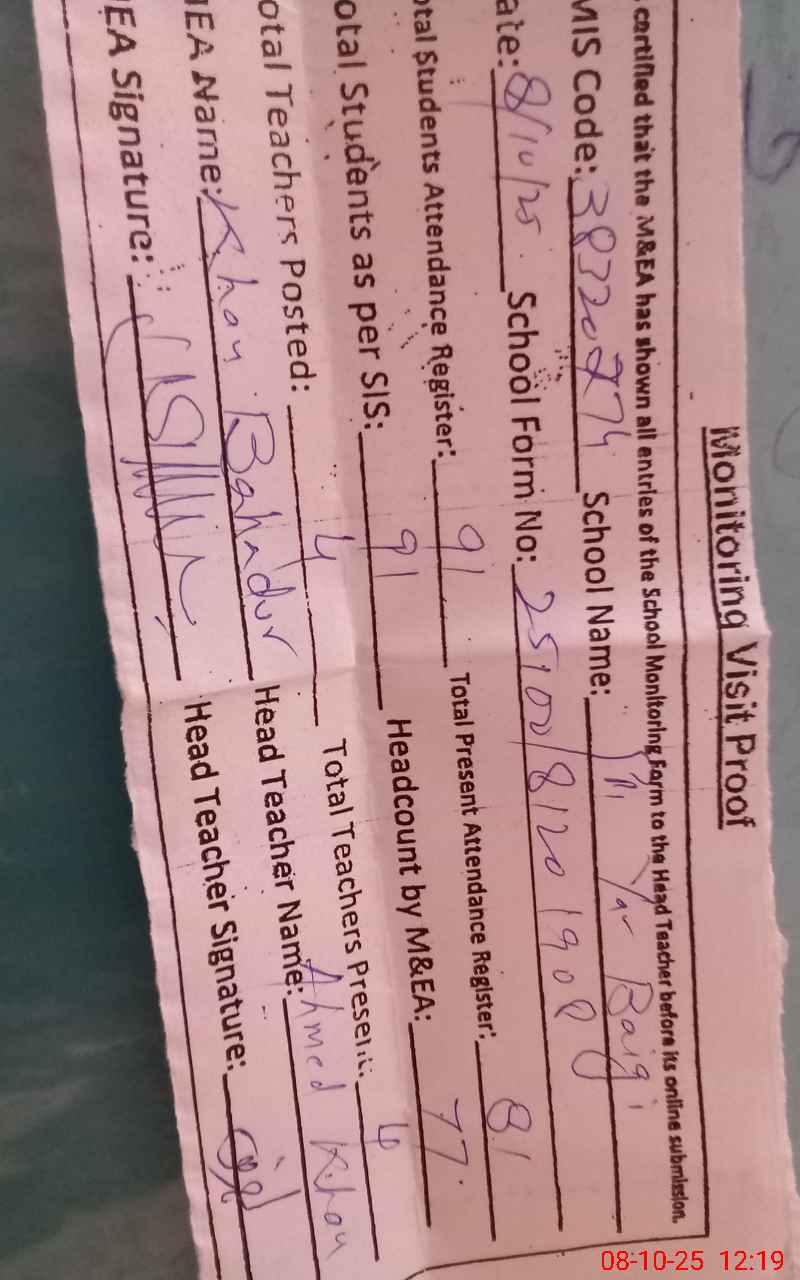 Monitoring Visit Proof
certified that the M&EA has shown all entries of the School Monitoring Form to the Head Teacher before its online submission.
MIS Code: 38320274 School Name: Yar Baig
ate: 8/10/25 School Form No: 25100/8120 1908
otal Students Attendance Register: 91 Total Present Attendance Register: 81
otal Students as per SIS: 91 Headcount by M&EA: 77
otal Teachers Posted: 4 Total Teachers Present: 4
EA Name: Khan Bahadur Head Teacher Name: Ahmed Khan
EA Signature: Head Teacher Signature:
08-10-25 12:19